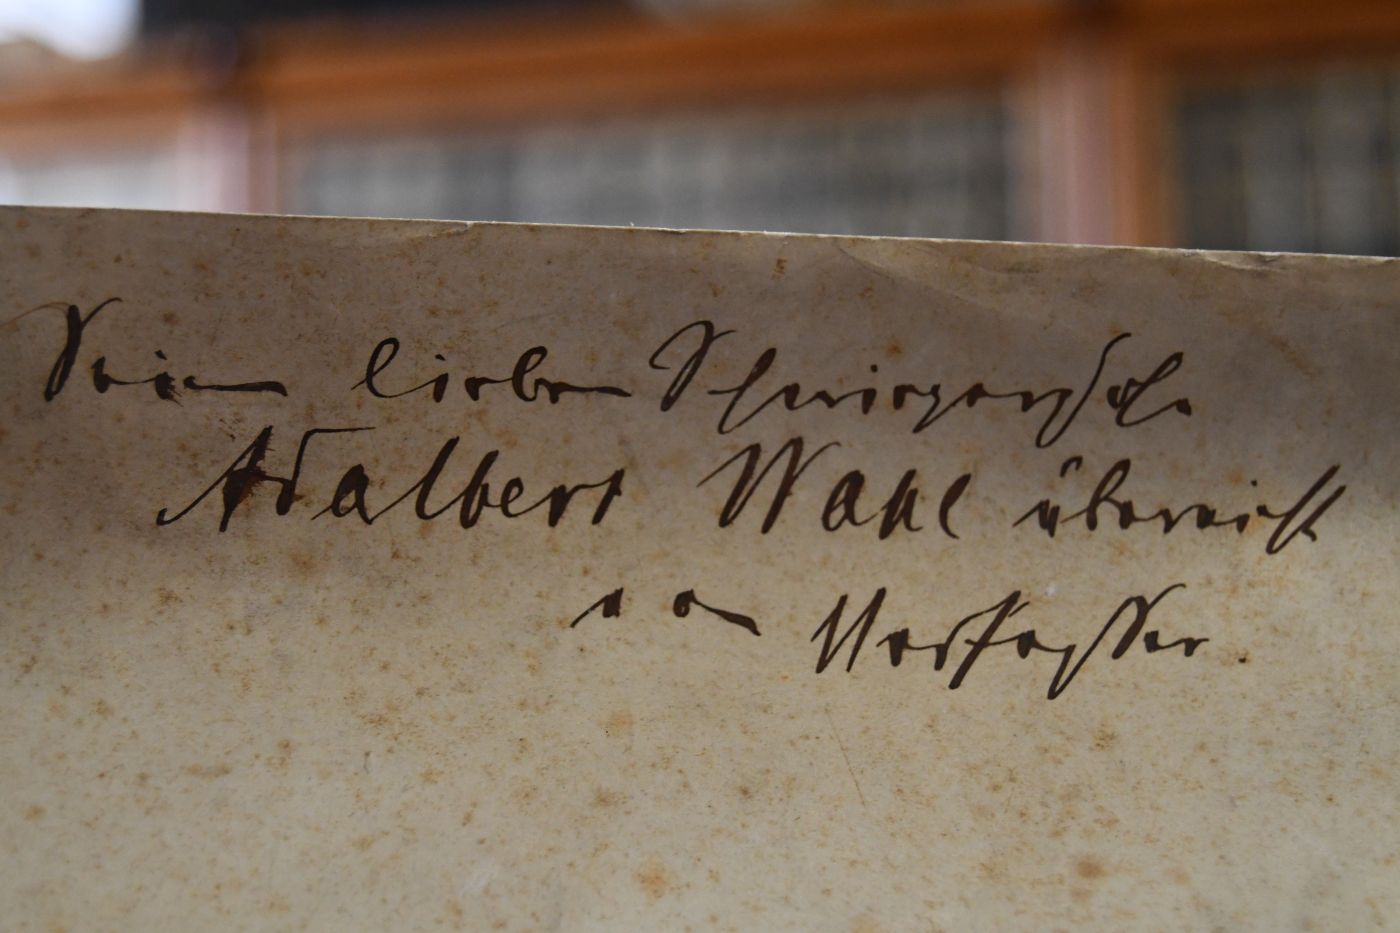 Seinem lieben Schwiegersohn
Adalbert Wahl überreicht
vom Verfasser.